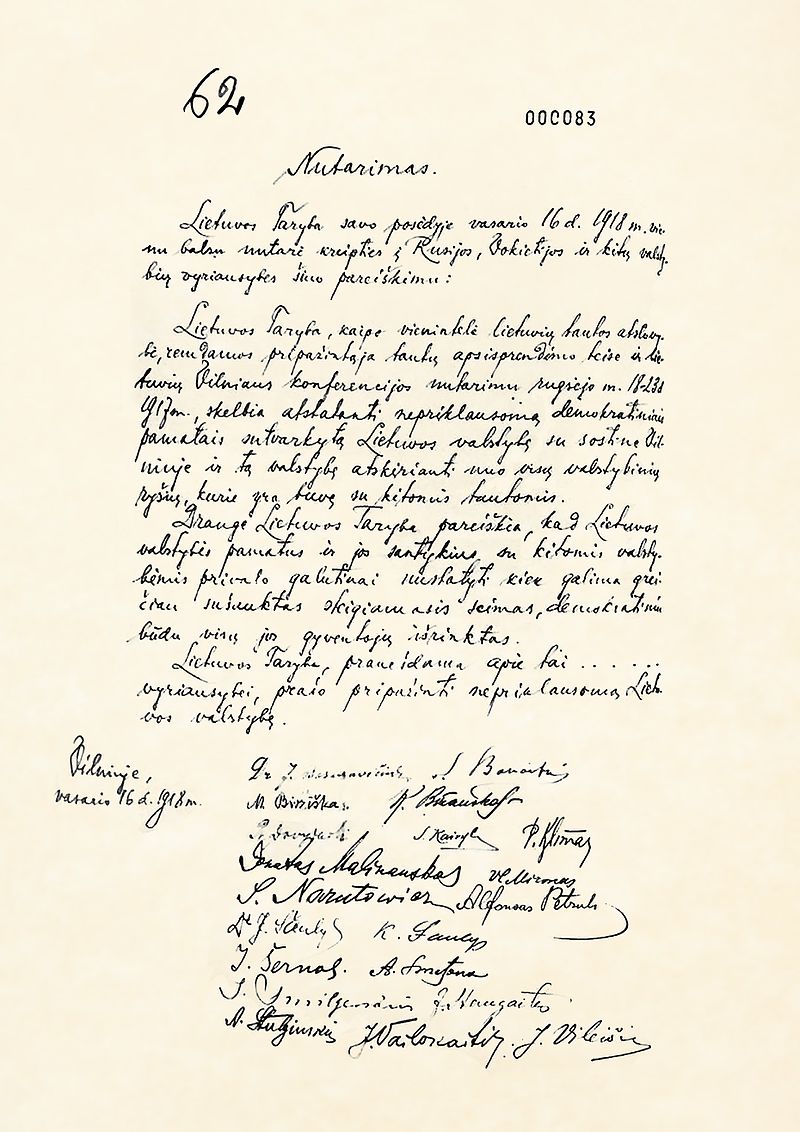 62
000083
Nutarimas.
Lietuvos Taryba savo posėdyje vasario 16 d. 1918 m. vie-
nu balsu nutarė kreipties į Rusijos, Vokietijos ir kitų valsty-
bių vyriausybes šiuo pareiškimu:
Lietuvos Taryba, kaipo vienintelė lietuvių tautos atstovy-
bė, remdamos pripažintąja tautų apsisprendimo teise ir lie-
tuvių Vilniaus konferencijos nutarimu rugsėjo m. 18-23 d
1917 m., skelbia atstatanti nepriklausomą demokratiniais
pamatais sutvarkytą Lietuvos valstybę su sostine Vil-
niuje ir tą valstybę atskirianti nuo visų valstybinių
ryšių, kurie yra buvę su kitomis tautomis.
Drauge Lietuvos Taryba pareiškia, kad Lietuvos
valstybės pamatus ir jos santykius su kitomis valsty-
bėmis privalo galutinai nustatyti kiek galima grei-
čiau sušauktas steigiamasis seimas, demokratiniu
būdu visų jos gyventojų išrinktas.
Lietuvos Taryba, pranešdama apie tai . . . . . .
vyriausybei, prašo pripažinti nepriklausomą Lietu-
vos valstybę.
Vilniuje,
vasario 16 d. 1918 m.
Dr J. Basanavičius S. Banaitis
M. Biržiška K. Bizauskas
P. Dovydaitis S. Kairys P. Klimas
Donatas Malinauskas Vl. Mironas
S. Narutowicz Alfonsas Petrulis
Dr J. Šaulys K. Šaulys
J. Šernas A. Smetona
J. Smilgevičius J. Staugaitis
A. Stulginskis J. Vailokaitis J. Vileišis